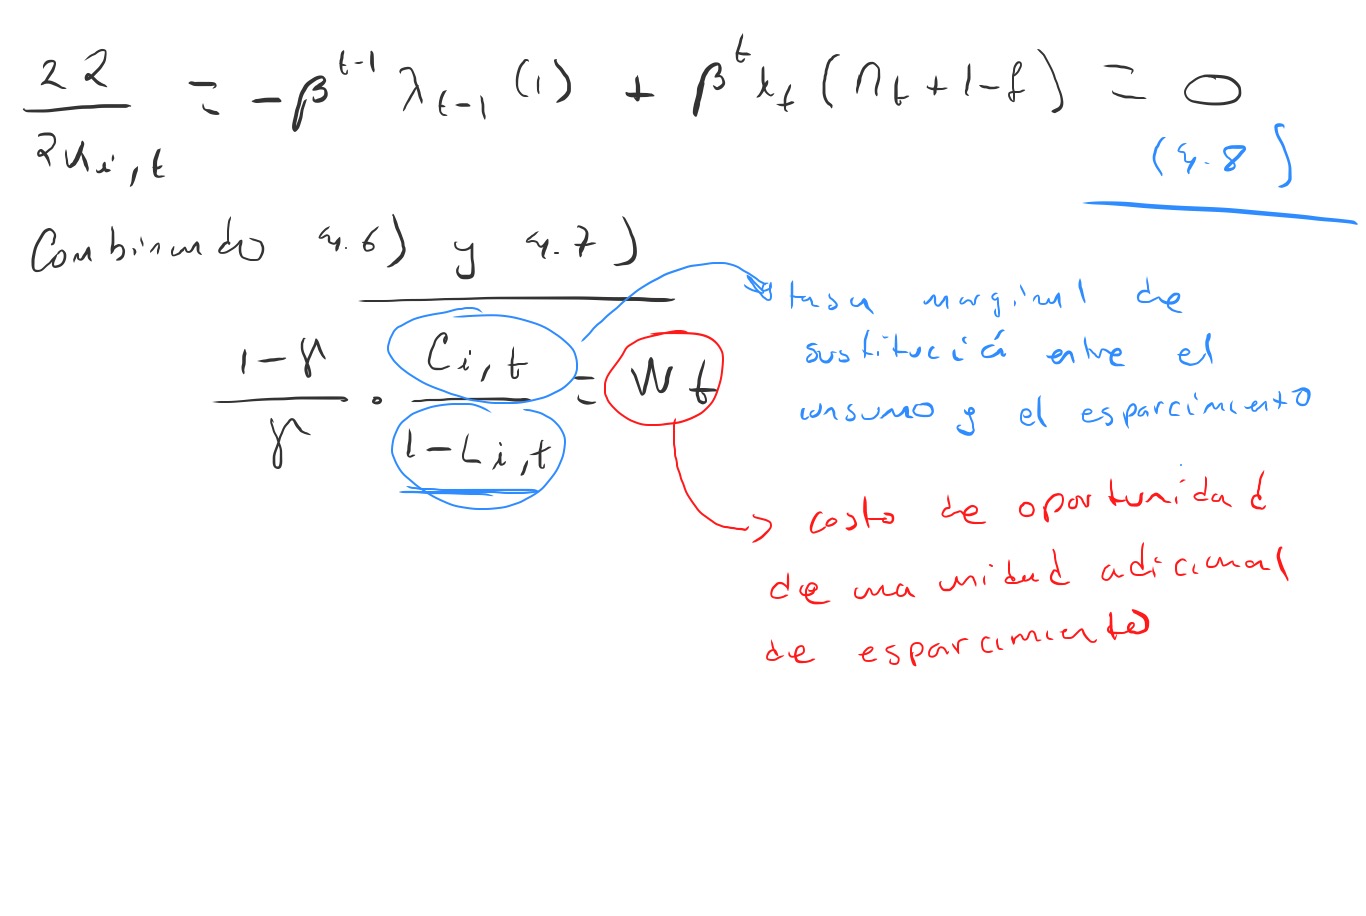 ∂ℒ/∂K_{i,t} = -β^{t-1} λ_{t-1} (1) + β^t λ_t (r_t + 1 - δ) = 0
(4.8)
Combinando 4.6) y 4.7)
(1-γ)/γ · C_{i,t}/(1-L_{i,t}) = W_t
tasa marginal de
sustitució entre el
consumo y el esparcimiento
costo de oportunidad
de una unidad adicional
de esparcimiento